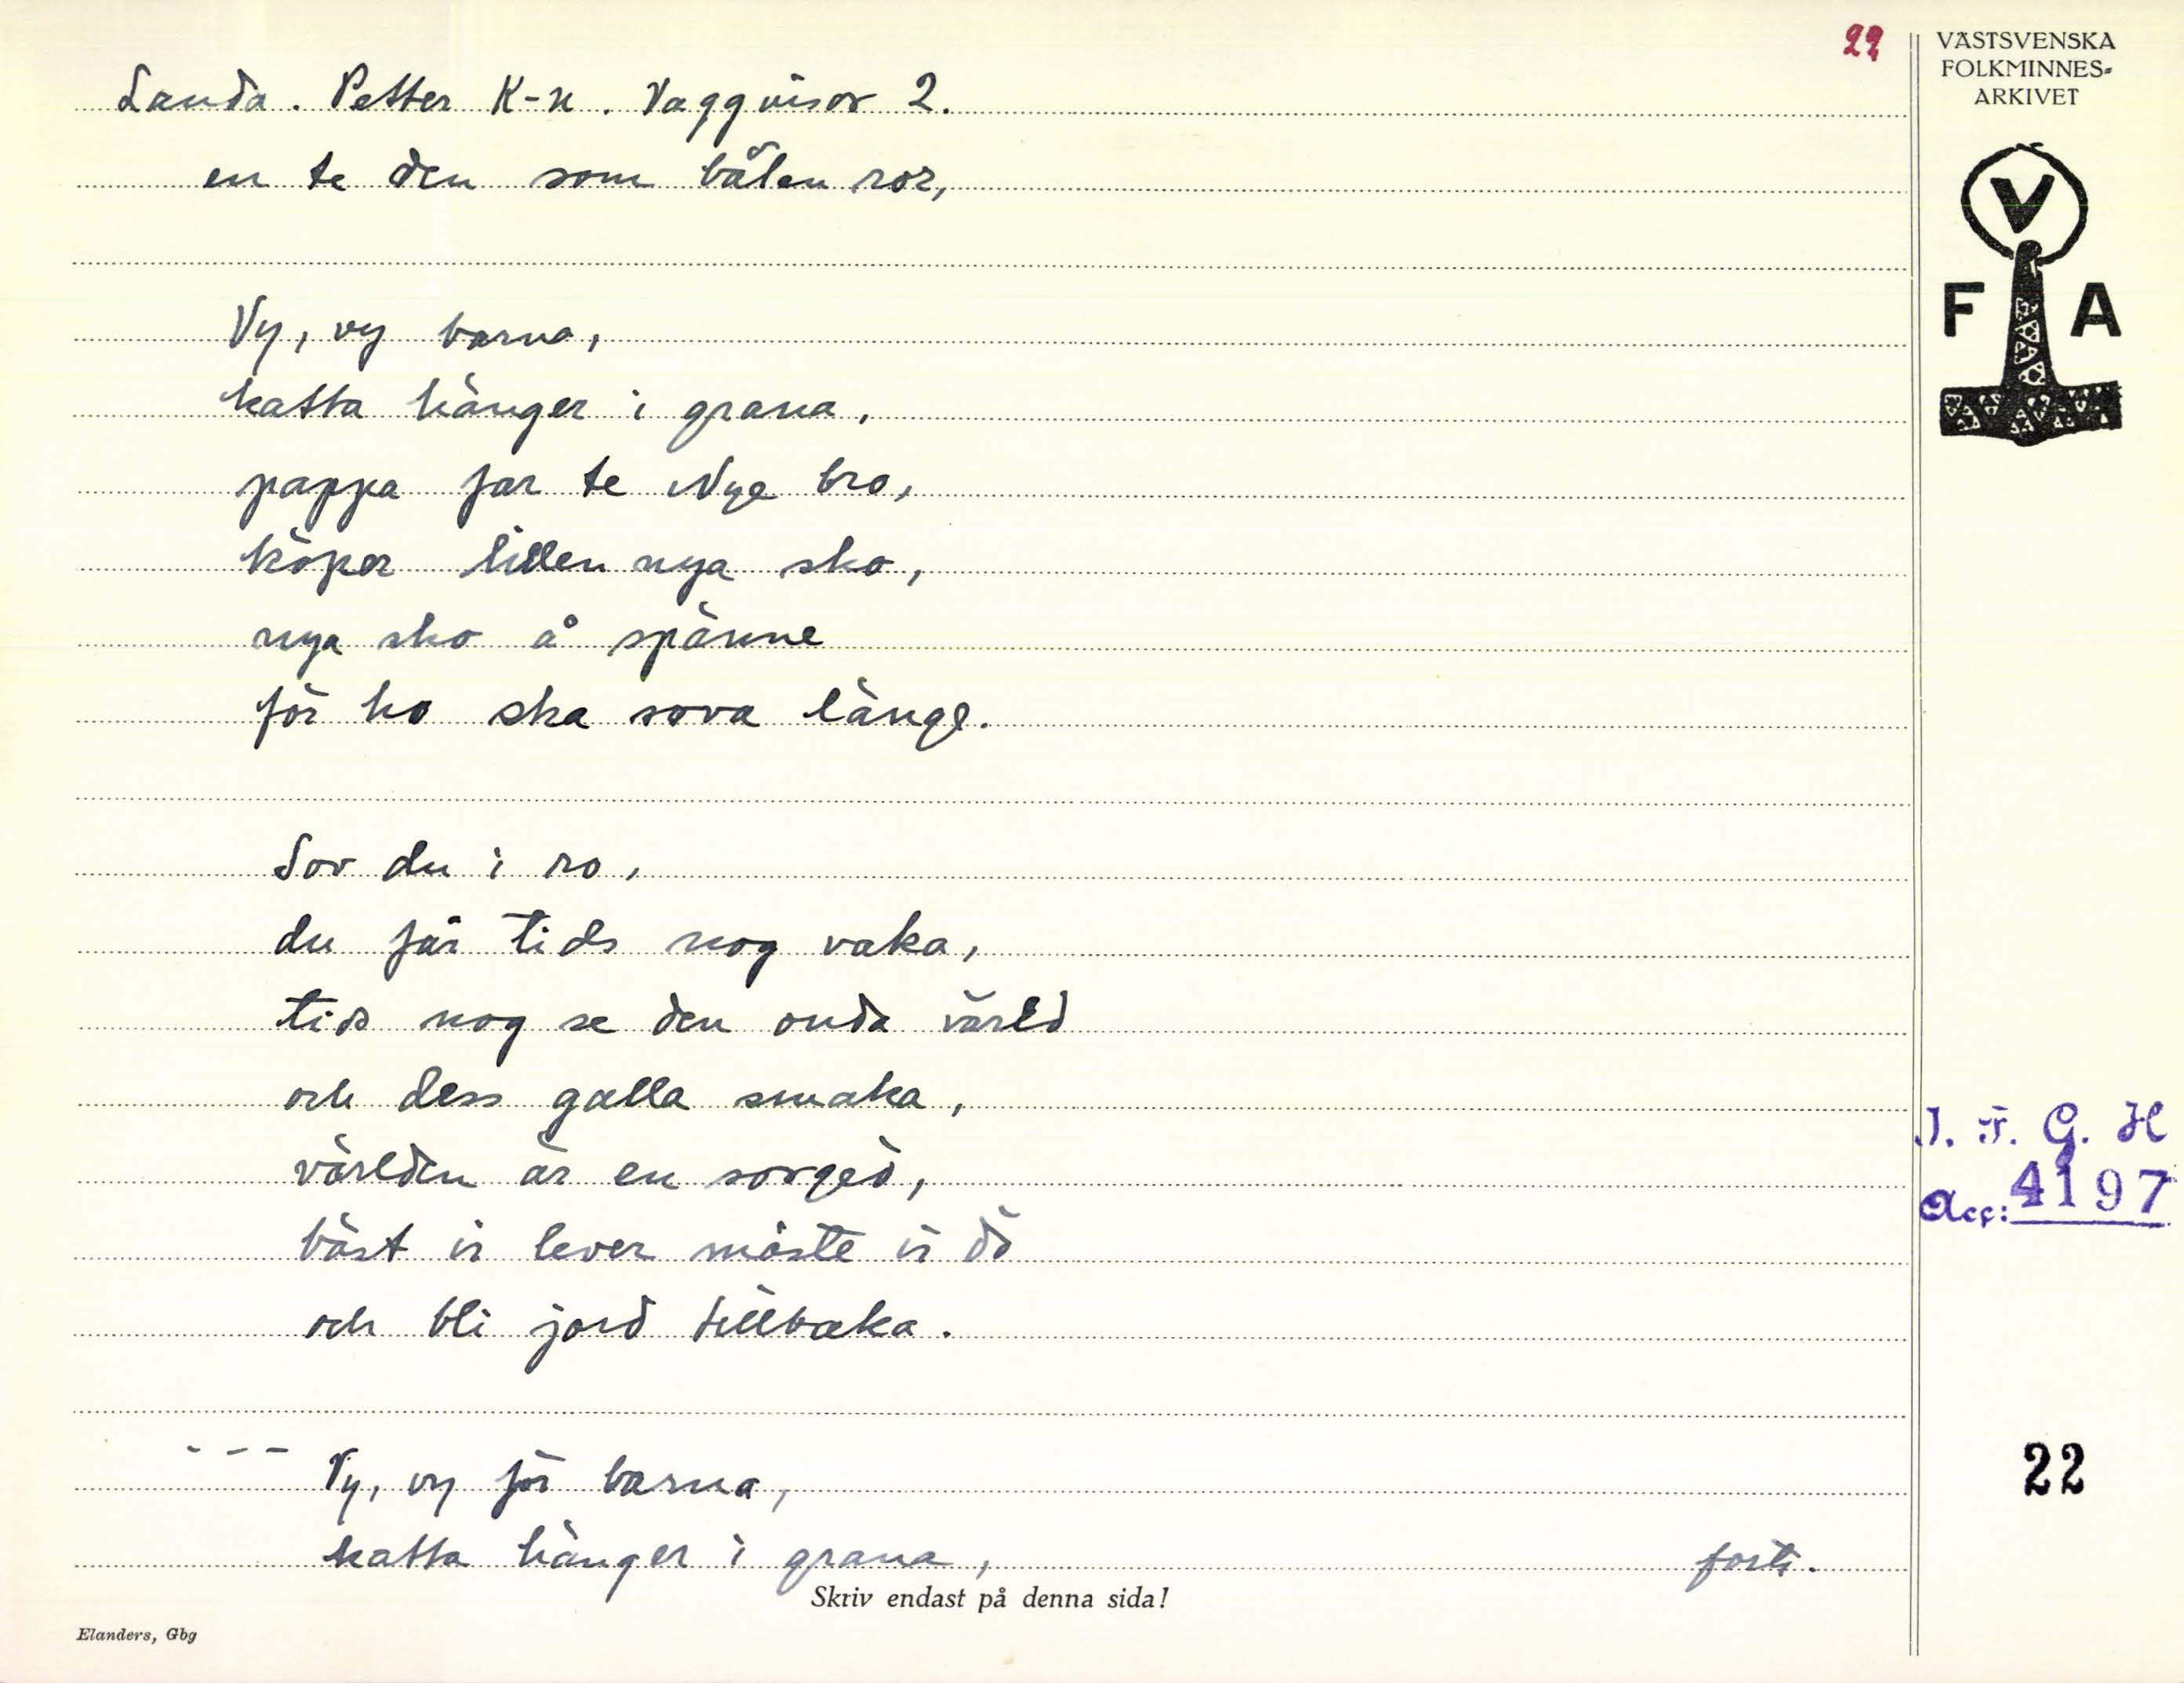 22
VÄSTSVENSKA
FOLKMINNES-
ARKIVET
V
F A
Landa. Petter K-n. Vaggvisor 2.
en te den som båten ror,
Vy, vy barna,
katta hänger i grana,
pappa far te Nye bro,
köper lillen nya sko,
nya sko å spänne
för ho ska sova länge.
Sov du i ro,
du får tids nog vaka,
tids nog se den onda värld
och dess galla smaka,
världen är en sorgeö,
bäst vi lever måste vi dö
och bli jord tillbaka.
--- Vy, vy för barna,
katta hänger i grana,
forts.
I. F. G. H
Acc: 4197
22
Skriv endast på denna sida!
Elanders, Gbg